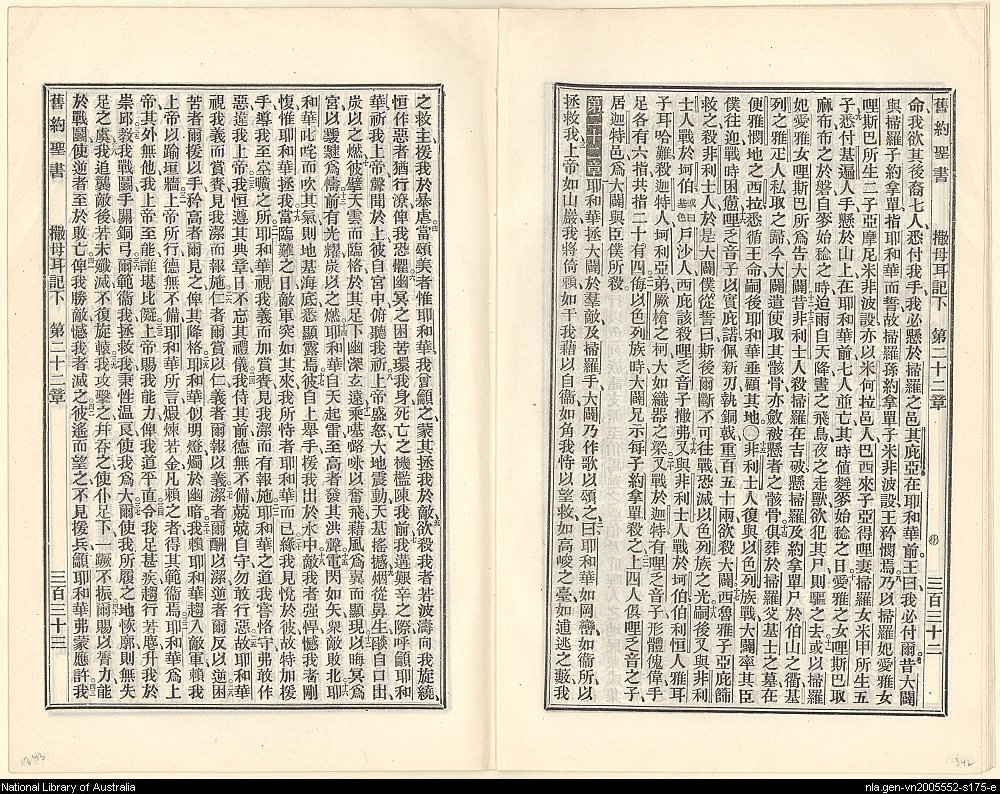 舊約聖書 撒母耳記下 第二十二章 三百三十二
命我欲其後裔七人悉付我手我必懸於掃羅之邑其庇亞在耶和華前王曰我必付爾昔大闢
與掃羅子約拿單指耶和華而誓故掃羅孫約拿單子米非波設王矜憫焉乃以掃羅妃愛雅女
哩斯巴所生二子亞摩尼米非波設亦以米何拉邑人巴西來子亞得哩妻掃羅女米甲所生五
子悉付基遍人手懸於山上在耶和華前七人並亡其時值麰麥始稔之日愛雅之女哩斯巴取
麻布布之於磐自麥始稔之時迨雨自天降晝之飛鳥夜之走獸欲犯其尸則驅之去或以掃羅
妃愛雅女哩斯巴所為告大闢昔非利士人殺掃羅在吉破懸掃羅及約拿單尸於伯山之衢基
列之雅疋人私取之歸今大闢遣使取其骸骨亦斂被懸者之骸骨俱葬於掃羅父基士之墓在
便雅憫地之西拉悉循王命嗣後耶和華垂顧其地〇非利士人復與以色列族戰大闢率其臣
僕往迎戰時困憊哩乏音子以實庇諾佩新刃執銅戟重百五十兩欲殺大闢西魯雅子亞庇篩
救之殺非利士人於是大闢僕從誓曰斯後爾斷不可往戰恐滅以色列族之光嗣後又與非利
士人戰於坷伯或曰基色戶沙人西庇該殺哩乏音子撒弗又與非利士人戰於坷伯伯利恒人雅耳
子耳哈難殺迦特人坷利亞弟厥槍之柯大如織器之梁又戰於迦特有哩乏音子形體傀偉手
足各有六指共指二十有四侮以色列族時大闢兄示每子約拿單殺之上四人俱哩乏音之子
居迦特邑為大闢與臣僕所殺
第二十二章耶和華拯大闢於羣敵及掃羅手大闢乃作歌以頌之曰耶和華如岡巒如衞所以
拯救我上帝如山巖我將倚賴如干我藉以自衞如角我恃以望救如高峻之臺如逋逃之藪我
之救主援我於暴虐當頌美者惟耶和華我曾籲之蒙其拯我於敵欲殺我者若波濤而我旋繞
恒作惡者猶行潦俾我恐懼幽冥之困苦環我身死亡之機檻陳我前我遘艱辛之際呼籲耶和
華祈我上帝聲聞於上彼自宮中俯聽我祈上帝盛怒大地震動天基搖撼烟從鼻生燄自口出
炭以之燃彼擘天雲而臨格於其足下幽深玄遠乘𠼻𡀔𠺕以奮飛藉風為翼而顯現以晦冥為
宮以靉靆為幬前有光耀炭以之燃耶和華自天起雷至高者發其洪聲電閃如矢衆敵敗北耶
和華叱咤而吹其氣則地基海底悉顯露焉彼自上舉手援我出於水中敵我者強悍憾我者剛
愎惟耶和華拯我當臨難之日敵軍突如其來我所恃者耶和華而已緣我見悅於彼故特加援
手導我至室曠之所耶和華視我義而加賞賚見我潔而有報施耶和華之道我嘗恪守弗敢作
惡違我上帝我恒遵其典章日不忘其禮儀我侍其前德無不備兢兢自守勿敢行惡故耶和華
視我義而賞賚見我潔而報施仁者爾賞以仁義者爾報以義潔者爾酬以潔逆者爾反以逆困
苦者爾援以手矜高者爾見之俾其降格耶和華似明燈燭於幽暗我賴耶和華趨入敵軍賴我
上帝以踰垣牆上帝所行德無不備耶和華所言煅煉若金凡賴之者得其範衞焉耶和華為上
帝其外無他我上帝至能誰堪比儗上帝賜我能力俾我道平直令我足甚疾趨行若麀升我於
崇邱教我戰鬬手關銅弓爾範衞我拯救我秉性温良使我為大爾使我所履之地恢廓則無失
足之虞我追襲敵後若未殲滅不復旋轅我攻擊之幷吞之使仆足下一蹶不振爾賜以膂力能
於戰鬬使逆者至於敗亡俾我勝敵憾我者滅之彼遙而望之不見援兵籲耶和華弗蒙應許我
舊約聖書 撒母耳記下 第二十二章 三百三十三
343
342
National Library of Australia
nla.gen-vn2005552-s175-e